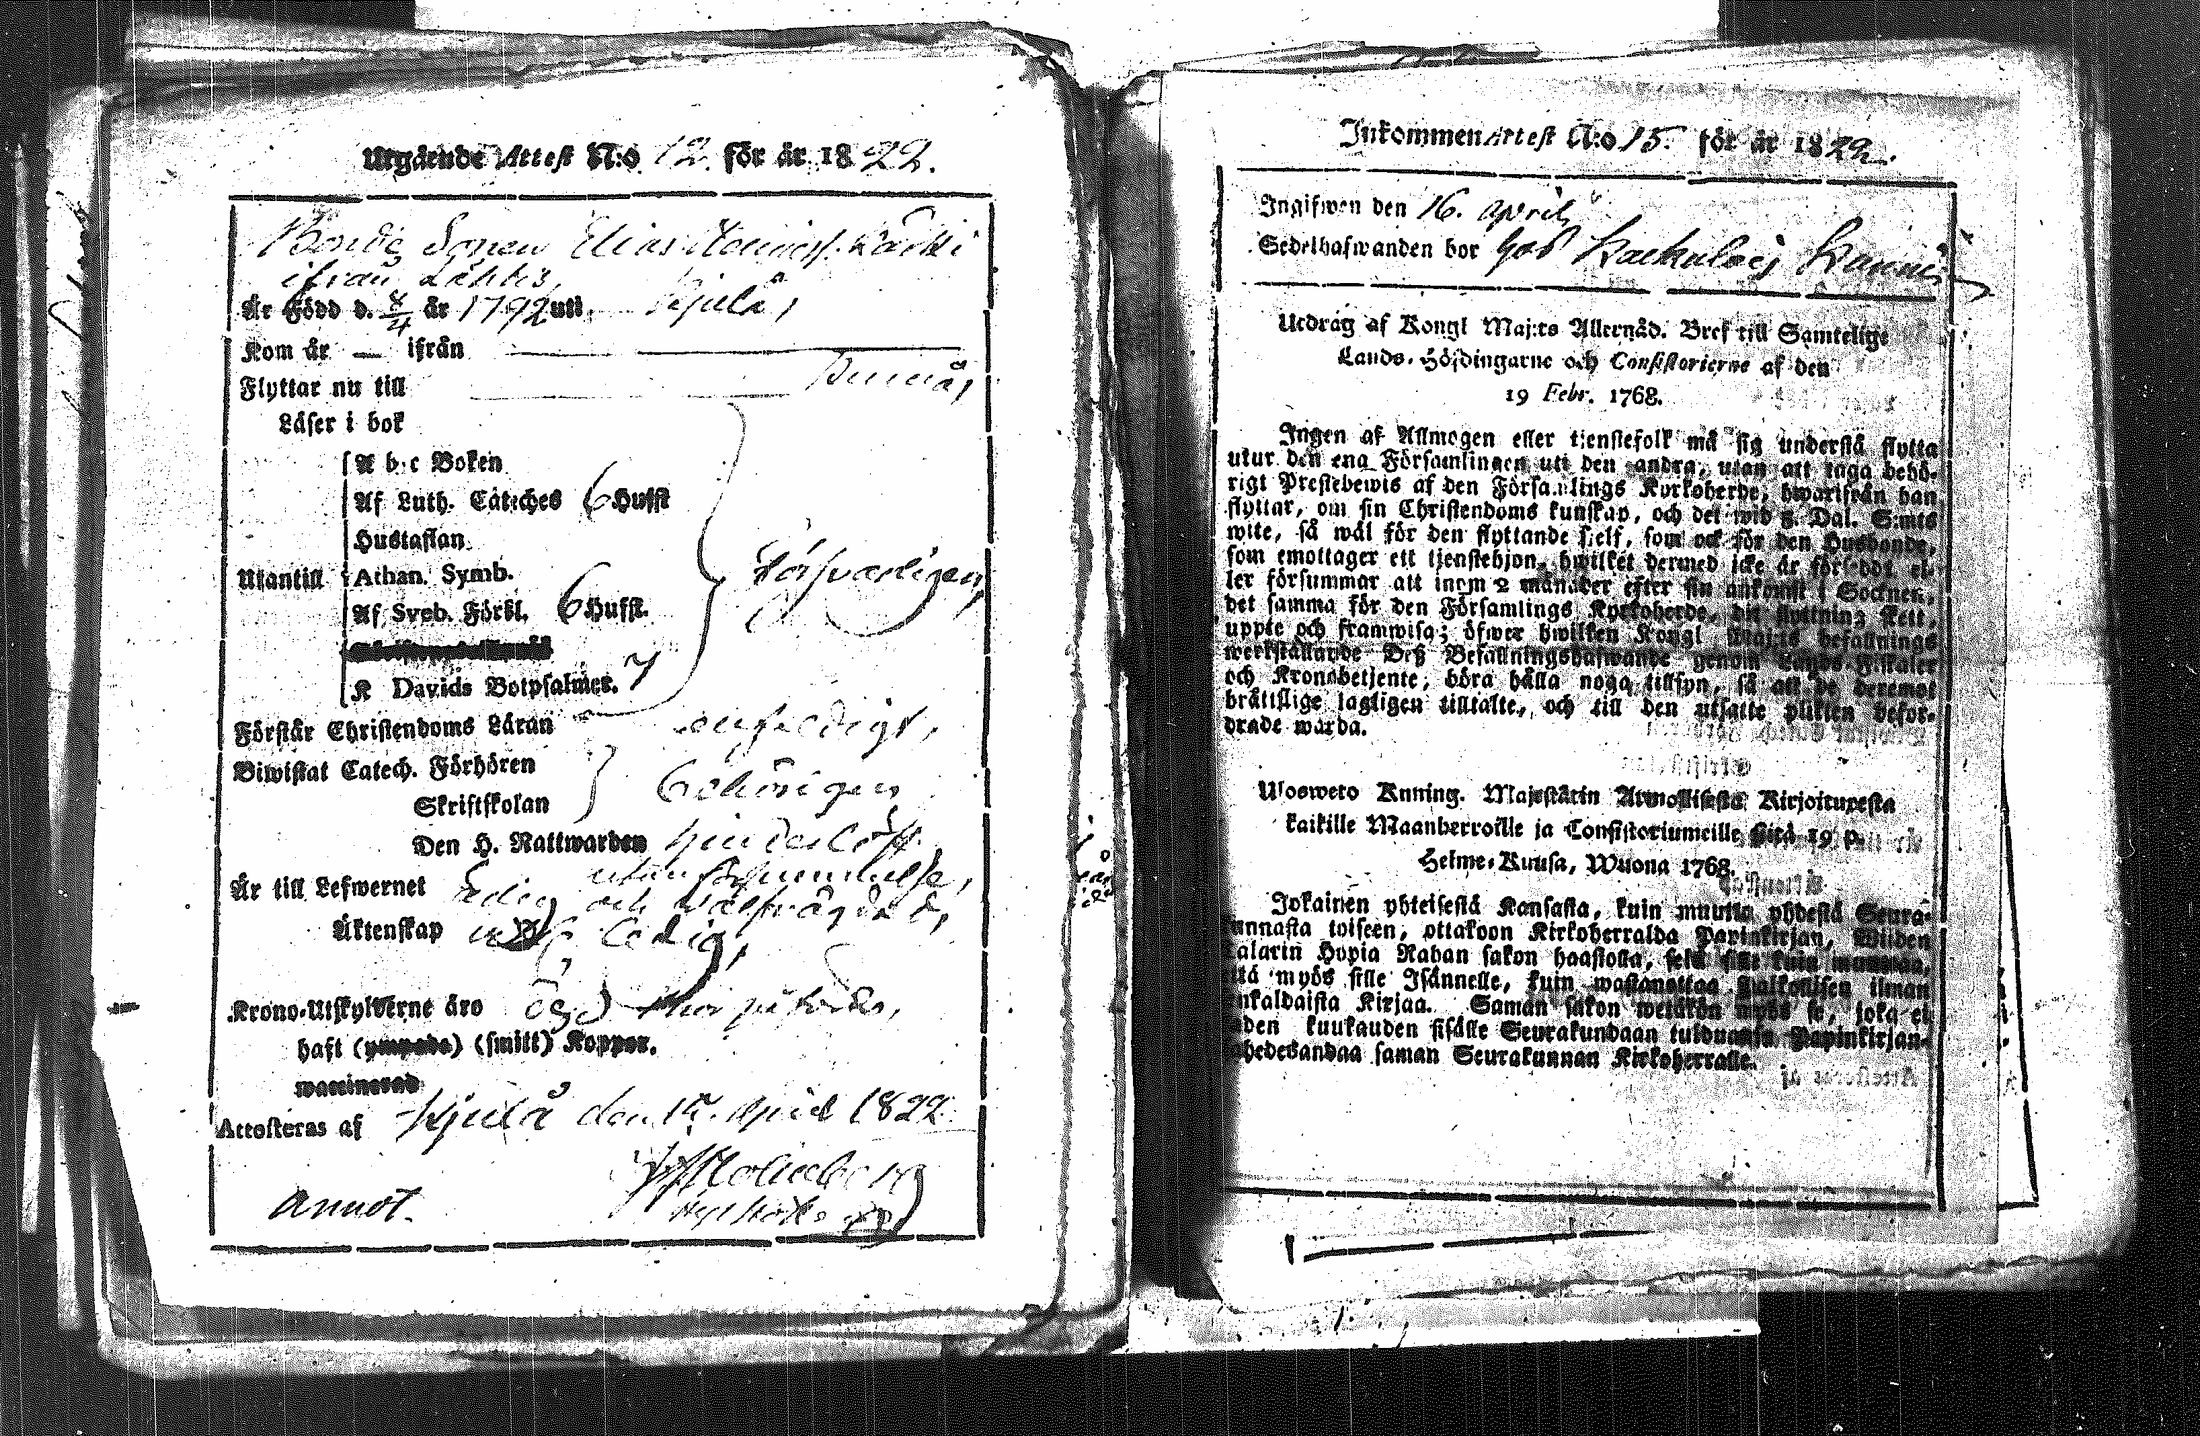 Utgående Attest N:o 12. för år 1822.
Bonde Sonen Elias
ifrån Lähtis,
Är Född d. 8/4 år 1792 uti Kjulå,
Kom år — ifrån
Flyttar nu till
Läser i bok
A b c Boken
Af Luth. Cateches 6 Hufst
Hustaflan
Utantill Athan. Symb.
Försvarligen,
Af Sveb. Förkl. 6 Hufst.
K Davids Botpsalmer. 7
Förstår Christendoms Läran enfaldigt,
Biwistat Catech. Förhören
Skriftskolan behörigen
Den H. Nattwarden
Är till Lefwernet
och wälfrägdad,
Äktenskap ledig,
Krono-Utskylderne äro
haft (ympade) (smitt) Koppor.
waccinerad
Attesteras af Kjulå den 15. April 1822.
Annot.
Inkommen Attest N:o 15. för år 1822.
Ingifwen den 16. April
Sedelhafwanden bor hos
Utdrag af Kongl Maj:ts Allernåd. Bref till Samtelige
Lands-Höfdingarne och Consistorierne af den
19 Febr. 1768.
Ingen af Allmogen eller tjenstefolk må sig understå flytta
utur den ena Församlingen uti den andra, utan att taga behö-
rigt Prestebewis af den Församlings Kyrkoherde, hwarifrån han
flyttar, om sin Christendoms kunskap, och det wid 5. Dal. S:mts
wite, så wäl för den flyttande sielf, som ock för den Husbonde,
som emottager ett tjenstehjon, hwilket dermed icke är försedt, el-
ler försummar att inom 2 månader efter sin ankomst i Socknen,
det samma för den Församlings Kyrkoherde, dit flyttning skett,
uppte och framwisa; öfwer hwilken Kongl Maj:ts befallnings
werkställande Deß Befallningshafwande genom Lands-Fiskaler
och Kronobetjente, böra hålla noga tillsyn, så att de deremot
bråttslige lagligen tilltalte, och till den utsatte plikten befor-
drade warda.
Ulosweto Kuning. Majestätin Armollisesta Kirjoituxesta
kaikille Maanherroille ja Consistoriumeille sitä 19 p.
Helme-Kuusa, Wuona 1768.
Jokainen yhteisestä Kansasta, kuin muutta yhdestä Seura-
kunnasta toiseen, ottakoon Kirkoherralda Papinkirjan, Wiiden
Talarin Hopia Rahan sakon haastolla, sekä sille kuin muuttaa,
että myös sille Isännelle, kuin wastanottaa Palkollisen ilman
senkaldaista Kirjaa. Saman sakon wetäkön myös se, joka ei
kahden kuukauden sisälle Seurakundaan tulduansa Papinkirjan-
sa edesandaa saman Seurakunnan Kirkoherralle.